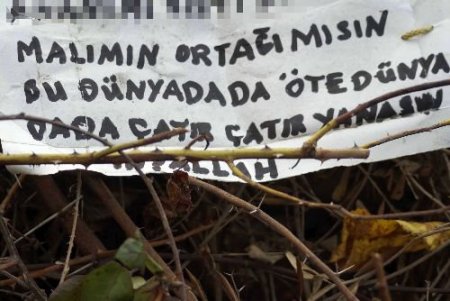 MALIMIN ORTAĞI MISIN
BU DÜNYADADA ÖTEDÜNYA
DADA ÇATIR ÇATIR YANASIN